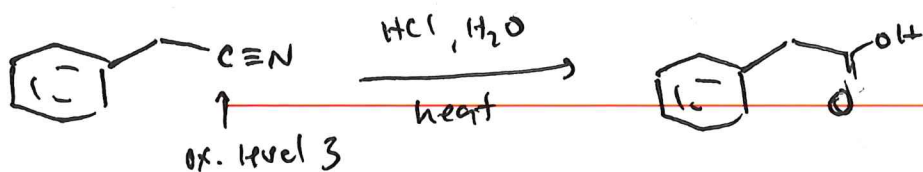 C≡N
HCl, H₂O
heat
OH
O
ox. level 3